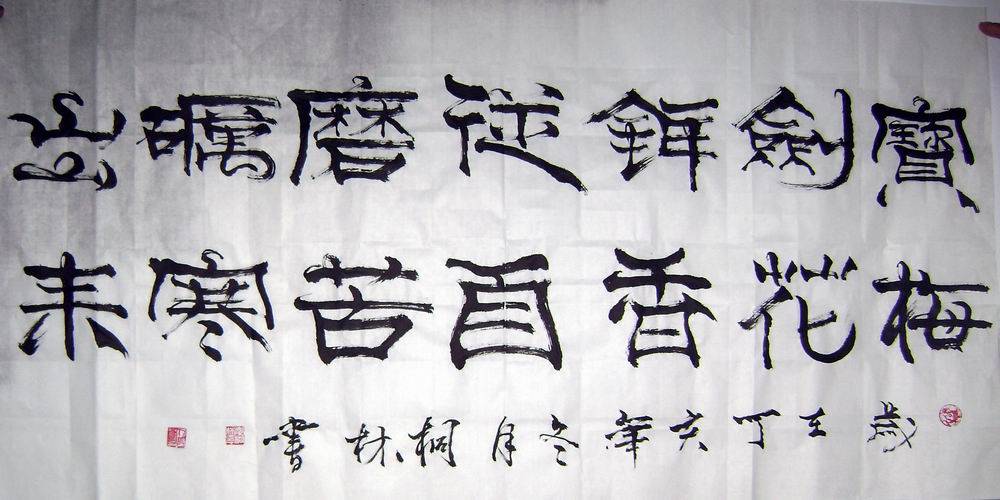 寶劍鋒從磨礪出
梅花香自苦寒来
歲在丁亥年冬月桐林書